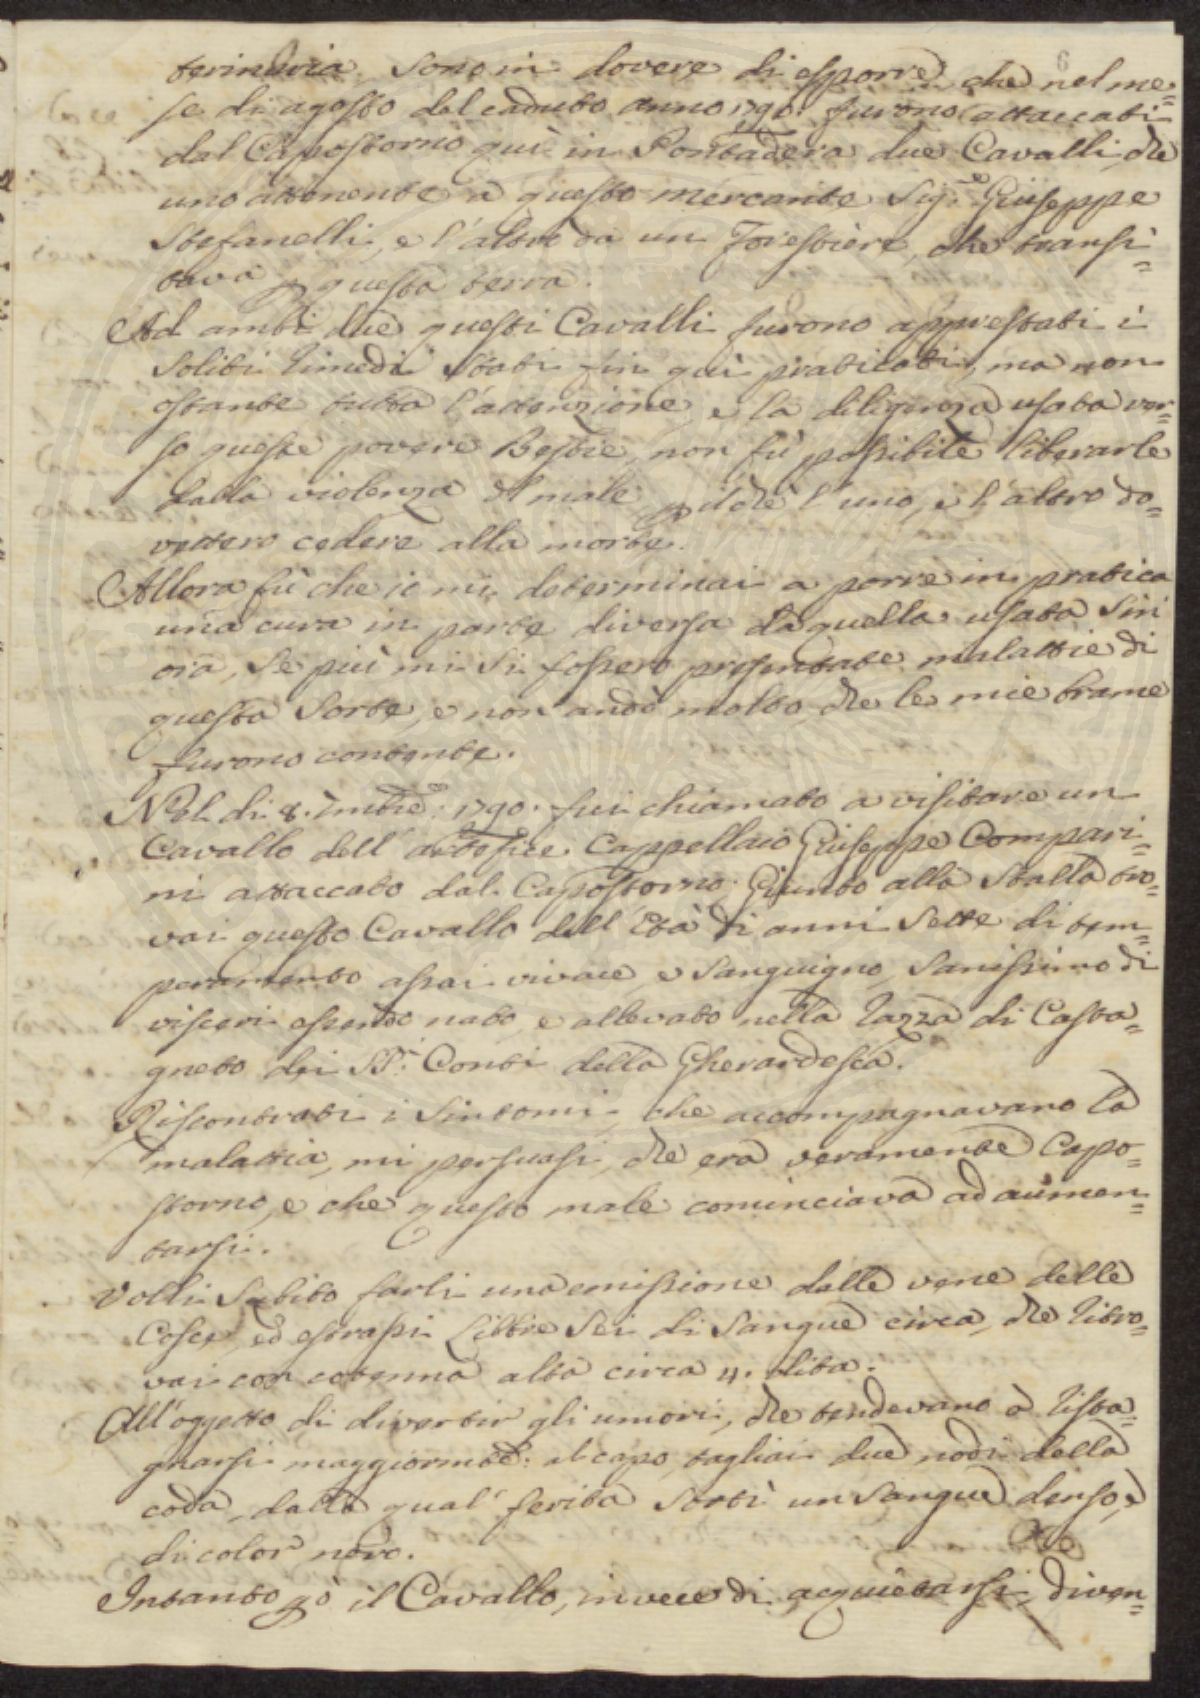 6
terinaria. Sono in dovere di esporre, che nel me=
se di agosto del caduto anno 1790. furono attaccati
dal Capostorno quì in Pontadera due Cavalli, che
uno attenente a questo mercante Sig.re Giuseppe
Stefanelli, e l'altro da un Forestiere, che transi=
tava p questa terra.
Ad ambi due questi Cavalli furono apprestati i
soliti rimedi stati fin quì praticati, ma non
ostante tutta l'attenzione, e la diligenza usata ver=
so queste povere Bestie, non fù possibile liberarle
dalla violenza del male, p il che l'uno, e l'altro do=
vettero cedere alla morte.
Allora fù che io mi determinai a porre in pratica
una cura in parte diversa da quella usata sin
ora, se più mi si fossero presentate malattie di
questa sorte, e non andò molto, che le mie brame
furono contente.
Nel dì 8. 1790. fui chiamato a visitare un
Cavallo dell'artefice Cappellaio Giuseppe Compari=
ni attaccato dal Capostorno. Giunto alla stalla tro=
vai questo Cavallo dell'età di anni sette di tem=
peramento assai vivace, e sanguigno, sanissimo di
visceri essendo nato, e allevato nella razza di Casta=
gneto dei SS.ri Conti della Gherardesca.
Riscontrati i sintomi, che accompagnavano la
malattia, mi persuasi, che era veramente Capo=
storno, e che questo male cominciava ad aumen=
tarsi.
Volli subito farli una emissione dalle vene delle
Cosce, ed estrassi Libbre sei di sangue circa, che ritro=
vai con cotenna alta circa 4. dita.
All'oggetto di divertir gli umori, che tendevano a rista=
gnarsi maggiormte: al capo, tagliai due nodi della
coda, dalla qual' ferita sortì un sangue denso, e
di color nero.
Intanto pò il Cavallo, invece di acquietarsi, diven=